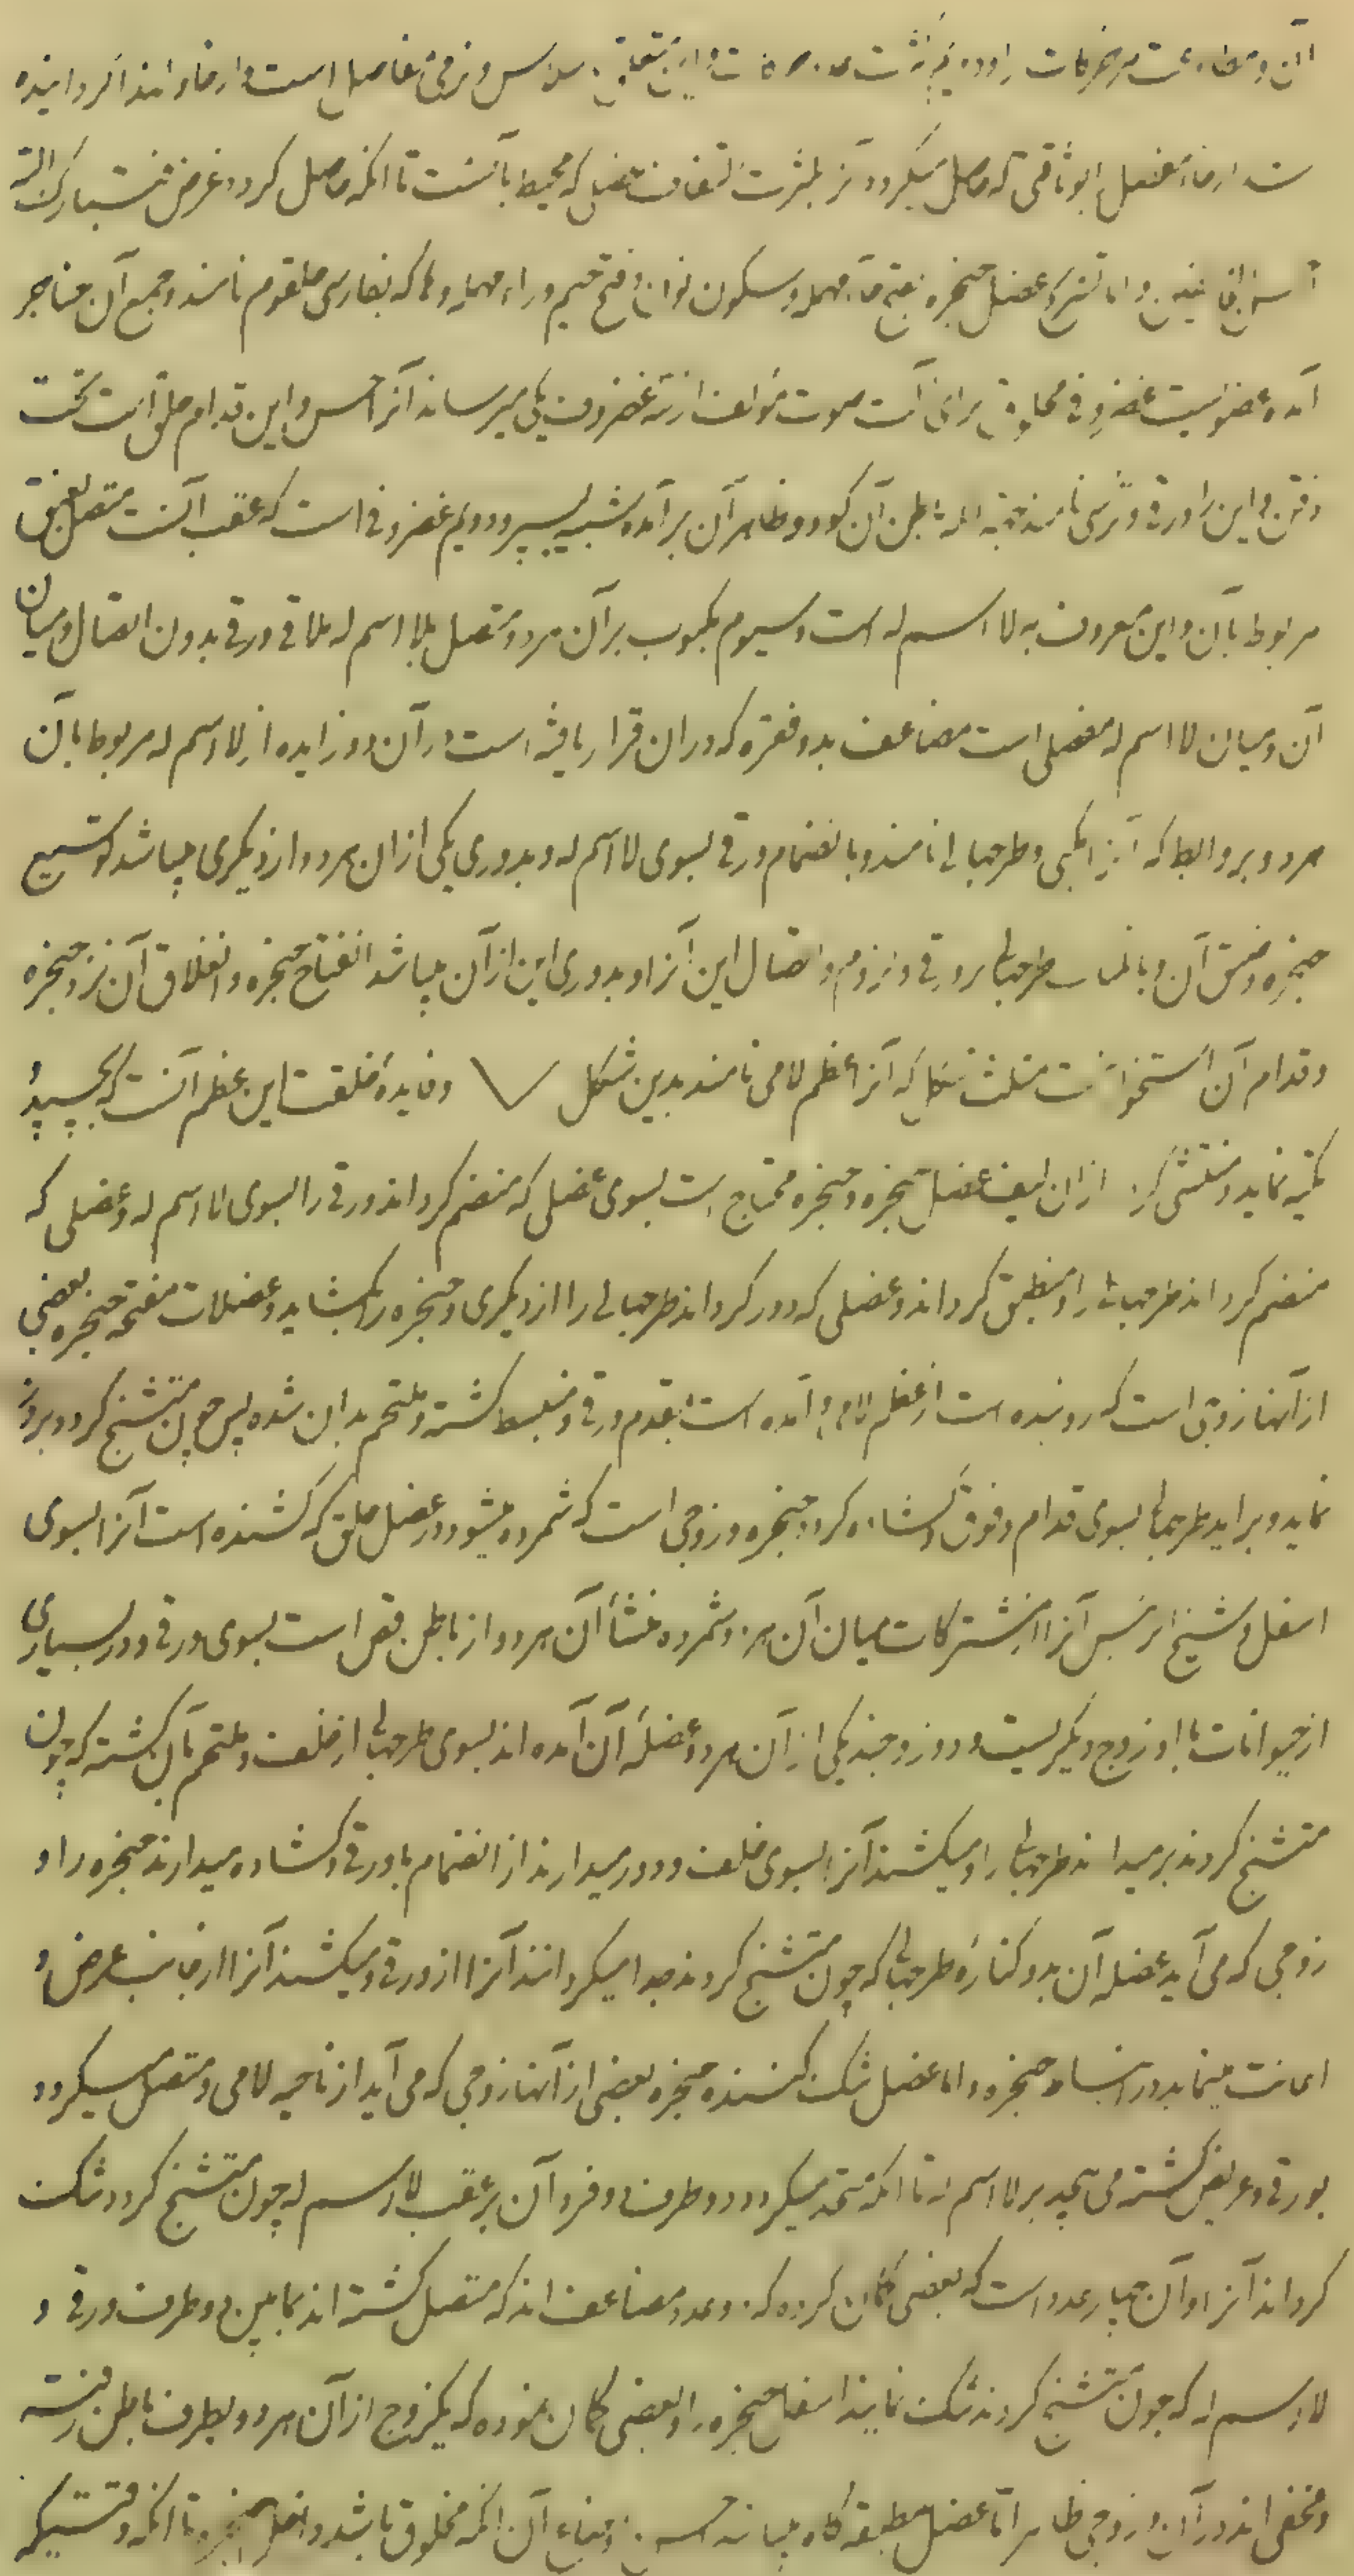 آن و مطاوعت مر حرکات ارادیه و این متعلق بسلاس و نرمی مفاصل است و ارخاء اینها گردانیده
شد ارخاء مفصل بوثاقتی که حاصل میگردد آنرا بکثرت التفاف عضل که محیط بآنست تا آنکه حاصل گردد غرض فتبارک الله
احسن الخالقین و اما تشریح عضل حنجره بفتح حاء مهمله و سکون نون و فتح جیم و راء مهمله و ها که بفارسی حلقوم نامند و جمع آن حناجر
آمده عضویست غضروفی مخلوق برای آلت صوت مؤلف از سه غضروف یکی میرساند آنرا حس و این قدام حلق است تحت
ذقن و این را درقی و ترسی نامند جهة آنکه باطن آن گود و ظاهر آن برآمده شبیه بسپر و دویم غضروفی است که عقب آنست متصل بعنق
مربوط بآن و این معروف به لا اسم له است و سیوم مکبوب بر آن هر دو متصل بلا اسم له ملاقی درقی بدون اتصال و میان
آن و میان لا اسم له مفصلی است مضاعف بدو نقره که در ان قرار یافته است در آن دو زایده از لا اسم له مربوط بآن
هر دو بروابط که آنرا مکبی و طرجهالی نامند و بانضمام درقی بسوی لا اسم له و بدوری یکی از ان هر دو از دیگری میباشد توسیع
حنجره و ضیق آن و بانکباب طرجهالی بر درقی و لزوم و اتصال این آنرا و بدوری این از آن میباشد انفتاح حنجره و انغلاق آن نزد حنجره
و قدام آن استخوانیست مثلث شکل که آنرا عظم لامی نامند بدین شکل و فایدهٔ خلقت این عظم آنست که بچسپد و
تکیه نماید و منتشی گردد از ان لیف عضل حنجره و حنجره محتاج است بسوی عضلی که منضم گرداند درقی را بسوی لا اسم له و عضلی که
منضم گرداند طرجهالی را و منطبق گرداند و عضلی که دور گرداند طرجهالی را از دیگری و حنجره را بکشاید و عضلات مفتحه حنجره بعضی
از آنها زوجی است که روئیده است از عظم لامی و آمده است بقدم درقی و منبسط گشته و ملتحم بدان شده پس چون متشنج گردد بروز
نماید و برآید طرجهالی بسوی قدام و فوق و کشاده گردد حنجره و زوجی است که شمرده میشود در عضل حلق که کشنده است آنرا بسوی
اسفل و شیخ الرئیس آنرا از مشترکات میان آن هر دو شمرده منشأ آن هر دو از باطن قص است بسوی درقی و در بسیاری
از حیوانات با او زوج دیگریست و دو زوجند یکی از آن هر دو عضلهٔ آن آمده اند بسوی طرجهالی از خلف و ملتحم بآن گشته که چون
متشنج گردند برمیدارند طرجهالی را و میکشند آنرا بسوی خلف و دور میدارند از انضمام با درقی و کشاده میدارند حنجره را و
زوجی که می آید عضله آن بدو کنارهٔ طرجهالی که چون متشنج گردند جدا میگردانند آنرا از درقی و میکشند آنرا از جانب عرض و
اعانت مینماید در انبساط حنجره و اما عضل تنگ کننده حنجره بعضی از آنها زوجی که می آید از ناحیه لامی و متصل میگردد
بدرقی و عریض گشته می پیچد بر لا اسم له تا آنکه متحد میگردد دو طرف دو فرد آن بر عقب لا اسم له چون متشنج گردد تنگ
گرداند آنرا و آن چهار عدد است که بعضی گمان کرده که دو عدد مضاعف اند که متصل گشته اند بمابین دو طرف درقی و
لا اسم له که چون متشنج گردند تنگ نمایند اسفل حنجره را و بعضی گمان نموده که یکزوج از آن هر دو بطرف باطن رفته
و مخفی اند در آن و زوجی ظاهر اما عضل مطبقه گاه میباشد احسن اوضاع آن آنکه مخلوق باشد داخل حنجره تا آنکه وقتیکه